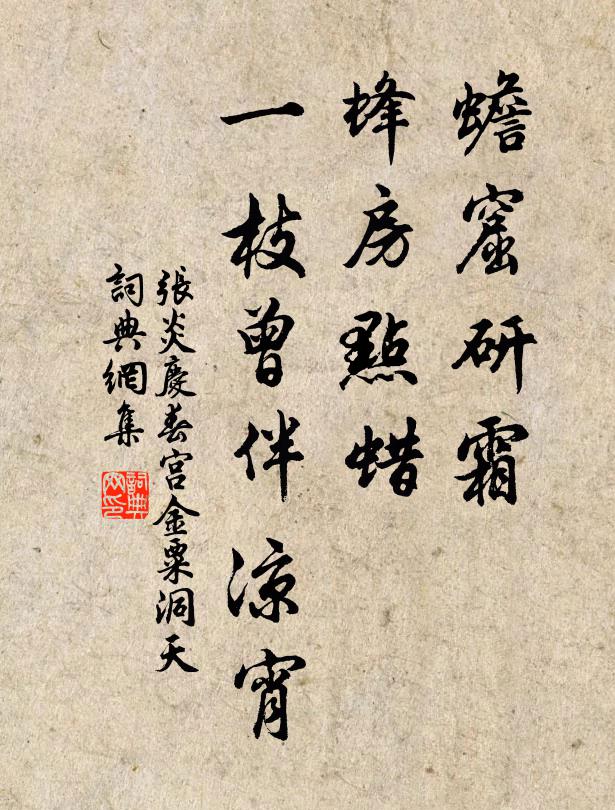 蟾窟研霜
蜂房點蜡
一枝曾伴涼宵
張炎慶春宮金粟洞天
詞典網集
詞典網印